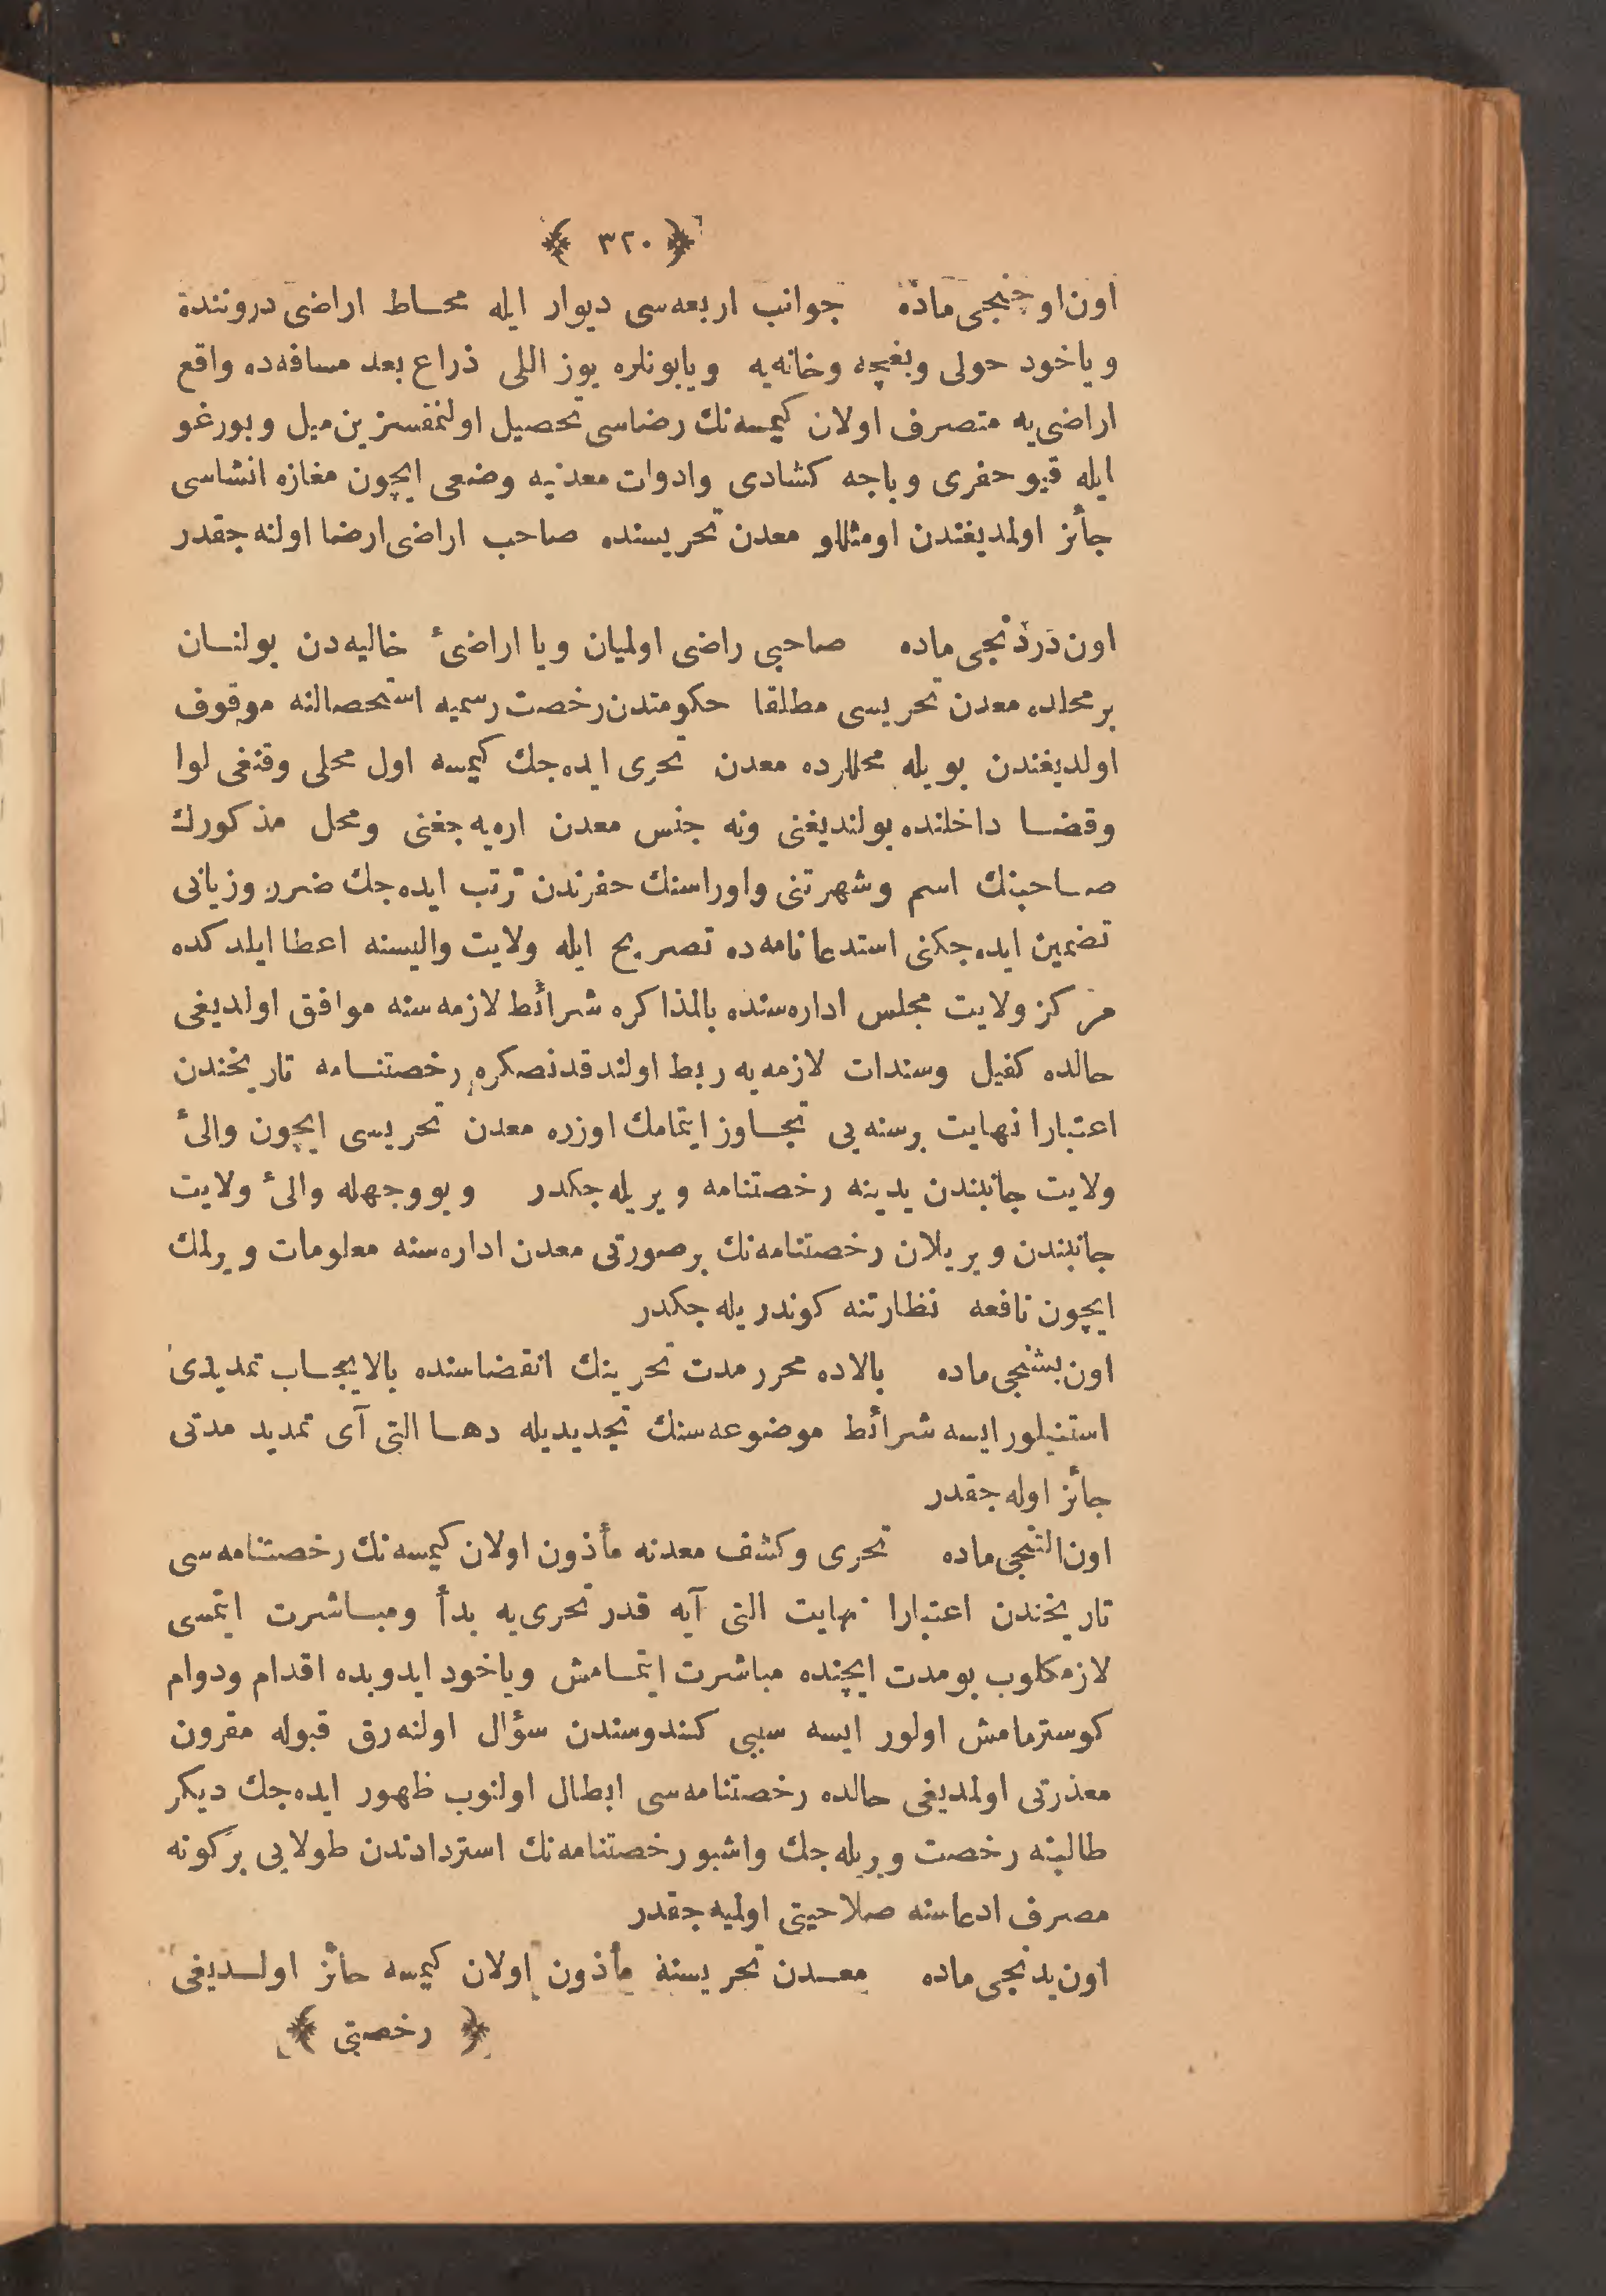 ﴿ ٣٢٠ ﴾
اون اوچنجی ماده جوانب اربعه‌سی دیوار ایله محاط اراضی دروننده
ویاخود حولی وبغچه وخانه‌یه ویابونلره یوز اللی ذراع بعد مسافه‌ده واقع
اراضی‌یه متصرف اولان کیمسه‌نك رضاسی تحصیل اولنمقسزین میل وبورغو
ایله قیو حفری وباجه کشادی وادوات معدنیه وضعی ایچون مغازه انشاسی
جائز اولمدیغندن اومثللو معدن تحریسنده صاحب اراضی ارضا اولنه‌جقدر
اون دردنجی ماده صاحبی راضی اولمیان ویا اراضیٔ خالیه‌دن بولنسان
بر محلده معدن تحریسی مطلقا حکومتدن رخصت رسمیه استحصالنه موقوف
اولدیغندن بویله محللرده معدن تحری ایده‌جك کیمسه اول محلی وقنغی لوا
وقضا داخلنده بولندیغنی ونه جنس معدن اره‌یه‌جغنی ومحل مذکورك
صاحبنك اسم وشهرتنی واوراسنك حفرندن ترتب ایده‌جك ضرر وزیانی
تضمین ایده‌جکنی استدعانامه‌ده تصریح ایله ولایت والیسنه اعطا ایلدکده
مرکز ولایت مجلس اداره‌سنده بالمذاکره شرائط لازمه‌سنه موافق اولدیغی
حالده کفیل وسندات لازمه‌یه ربط اولندقدنصکره رخصتنامه تاریخندن
اعتبارا نهایت برسنه‌یی تجاوز ایتمامك اوزره معدن تحریسی ایچون والیٔ
ولایت جانبندن یدینه رخصتنامه ویریله‌جکدر وبووجهله والیٔ ولایت
جانبندن ویریلان رخصتنامه‌نك برصورتی معدن اداره‌سنه معلومات ویرلمك
ایچون نافعه نظارتنه کوندریله‌جکدر
اون بشنجی ماده بالاده محرر مدت تحرینك انقضاسنده بالایجاب تمدیدی
استنیلور ایسه شرائط موضوعه‌سنك تجدیدیله دها التی آی تمدید مدتی
جائز اوله‌جقدر
اون التنجی ماده تحری وکشف معدنه مأذون اولان کیمسه‌نك رخصتنامه‌سی
تاریخندن اعتبارا نهایت التی آیه قدر تحری‌یه بدأ ومباشرت ایتمسی
لازمکلوب بومدت ایچنده مباشرت ایتمامش ویاخود ایدوبده اقدام ودوام
کوسترمامش اولور ایسه سببی کندوسندن سؤال اولنه‌رق قبوله مقرون
معذرتی اولمدیغی حالده رخصتنامه‌سی ابطال اولنوب ظهور ایده‌جك دیکر
طالبنه رخصت ویریله‌جك واشبو رخصتنامه‌نك استردادندن طولایی برکونه
مصرف ادعاسنه صلاحیتی اولمیه‌جقدر
اون یدنجی ماده معدن تحریسنه مأذون اولان کیمسه حائز اولدیغی
﴿ رخصتی ﴾